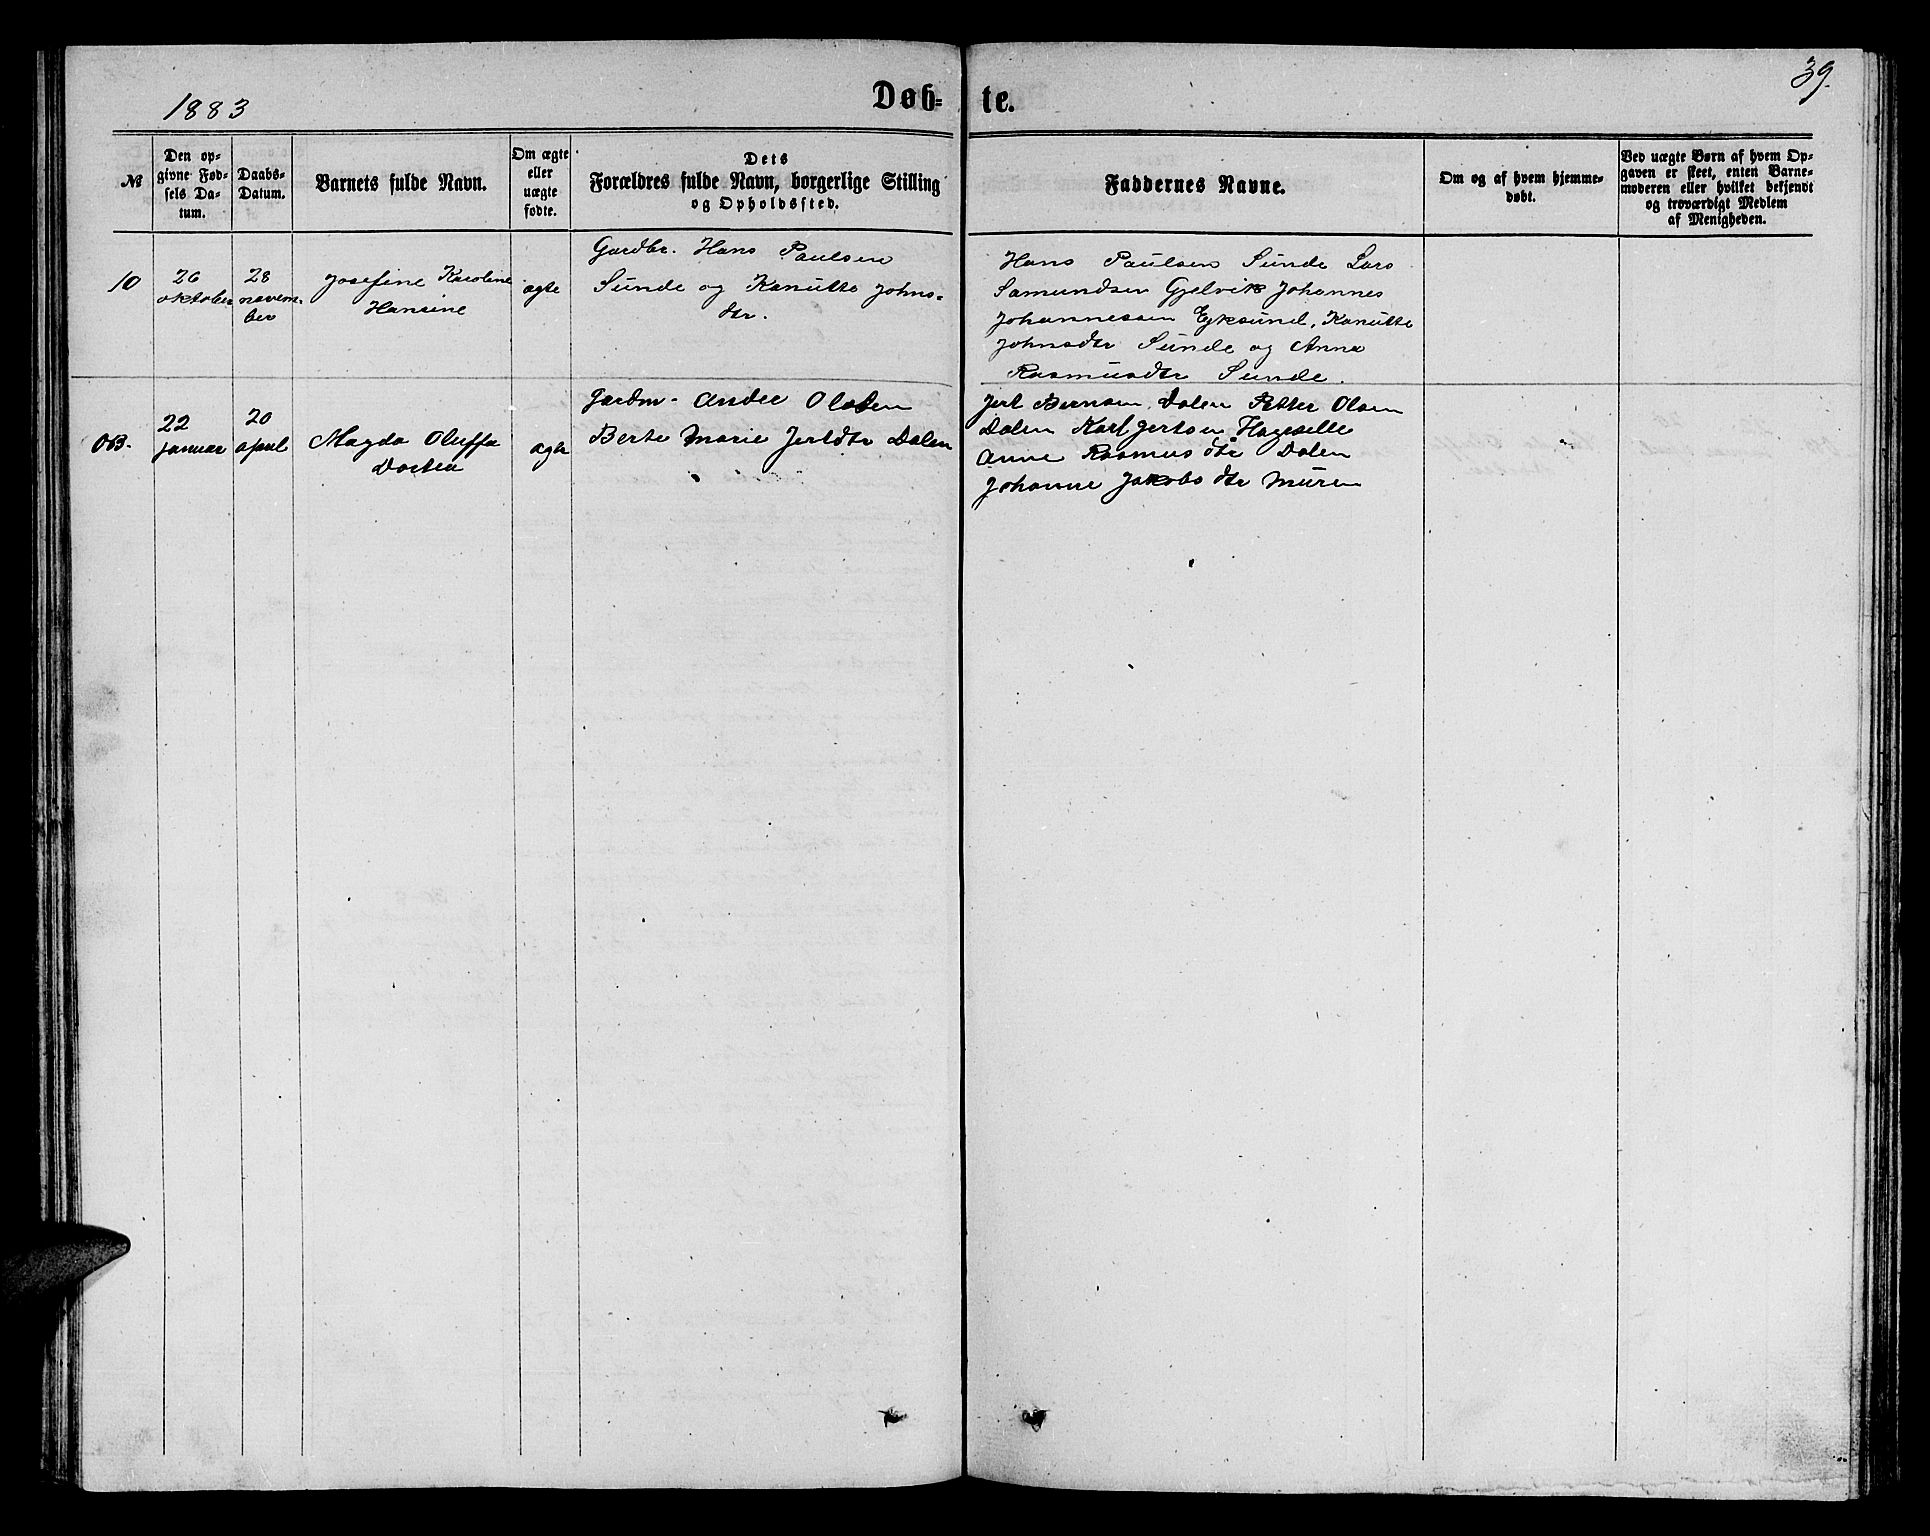 1883
Døb-te.
39.
№
Den op-
givne Fød-
sels Da-
tum.
Daabs-
Datum.
Barnets fulde Navn.
Om ægte
eller
uægte
fødte.
Dets
Forældres fulde Navn, borgerlige Stilling
og Opholdssted.
Faddernes Navne.
Om og af hvem hjemme-
døbt.
Ved uægte Børn af hvem Op-
gaven er skeet, enten Barne-
moderen eller hvilket bekjendt
og troværdigt Medlem
af Menigheden.
10
26
oktober
28
novem-
ber
Josefine Karoline
Hansine
ægte
Gardbr. Hans Paulsen
Sunde og Kanutte Johns-
dtr.
Hans Paulsen Sunde Lars
Samundsen Gjelvik Johannes
Johannessen Ejksund, Kanutte
Johnsdtr Sunde og Anna
Rasmusdtr Sunde.
OB.
22
januar
20
april
Magda Oluffa
Dortea
ægte
Gardm. Andre Olsen
Berte Marie Jertdtr Dalen
Jert Bernsen Dalen Petter Olsen
Dalen Karl Jertsen Hageselle
Anne Rasmusdtr Dalen
Johanne Jakobsdtr Muren